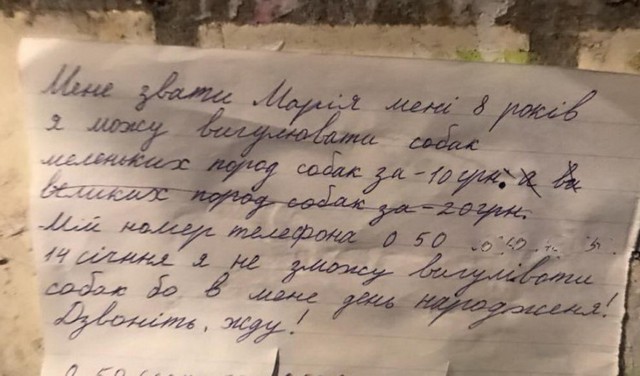 Мене звати Марія мені 8 років
я можу вигулювати собак
меленьких пород собак за - 10 грн. а ва
великих пород собак за - 20 грн.
Мій номер телефона 0 50
14 січння я не зможу вигулівати
собак бо в мене день народженя!
Дзвоніть, жду!
0 50